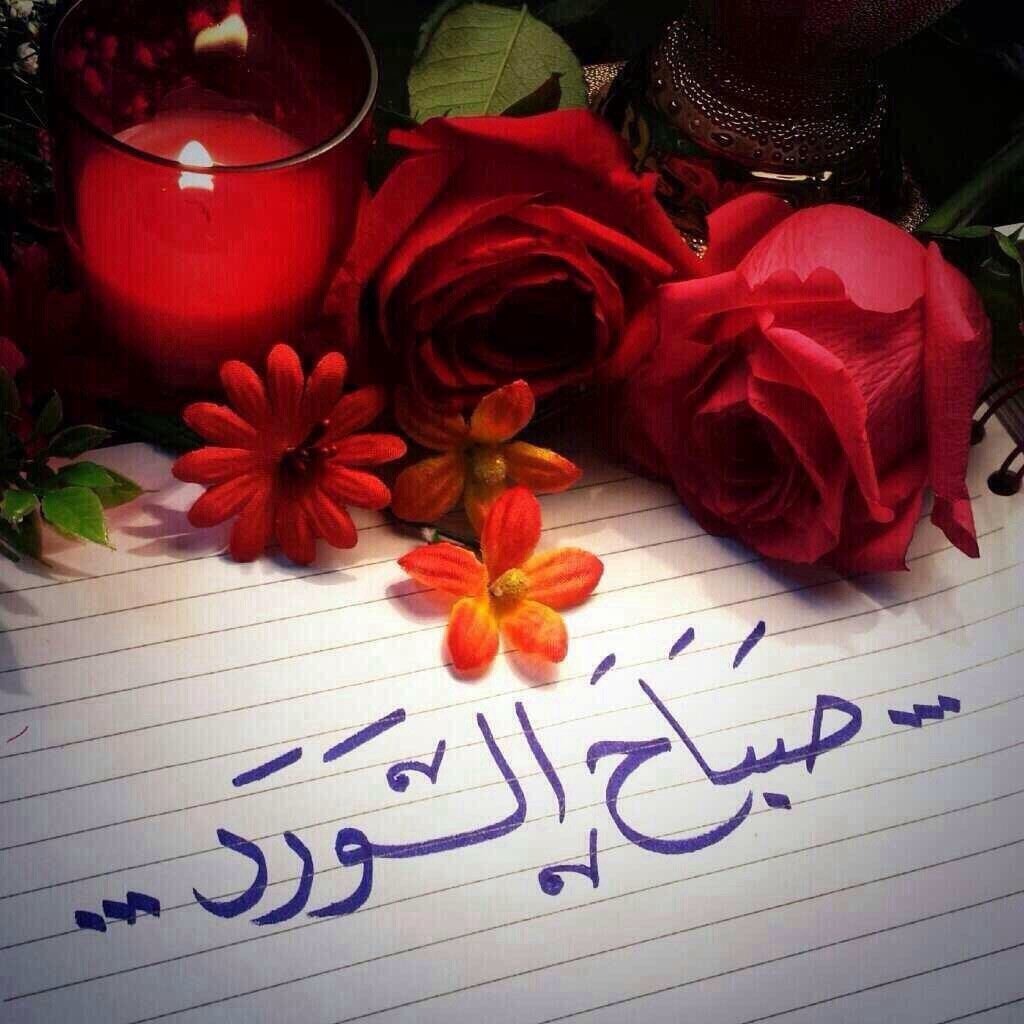 ... صَبَاحُ الوَرَد ...